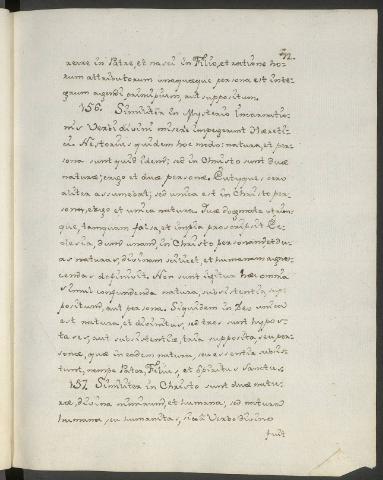 72.
rerse in Patre, et nasci in Filio, et ratione ho-
rum attributorum unaquaeque persona est inte-
grum agendi principium, aut suppositum.
156. Similiter in Mysterio Incarnatio-
nis Verbi divini misere impegerunt Haereti-
ci Nestorius quidem hoc modo: natura, et per-
sona sunt quid idem: sed in Christo sunt duae
naturae; ergo et duae personae. Eutyques vero
aliter assumebat; sed unica est in Christo per-
sona, ergo et unica natura. Quae dogmata utrum-
que, tamquam falsa, et impia proscribit Ec-
clesia, dum unam, in Christo personam et du-
as naturas, divinam scilicet, et humanam agnos-
cendas definivit. Non sunt igitur haec omnia
simul confundenda natura, subsistentia, sup-
positum, aut persona. Siquidem in Deo unica
est natura, et divinitas, sed tres sunt hypos-
tases, aut subsistentiae, tria supposita, seu per-
sonae, quae in eadem natura, seu essentia subsis-
tunt, nempe Pater, Filius, et Spiritus Sanctus.
157. Similiter in Christo sunt duae natu-
rae, divina nimirum, et humana; sed natura
humana, seu humanitas, Verbo divino
fuit